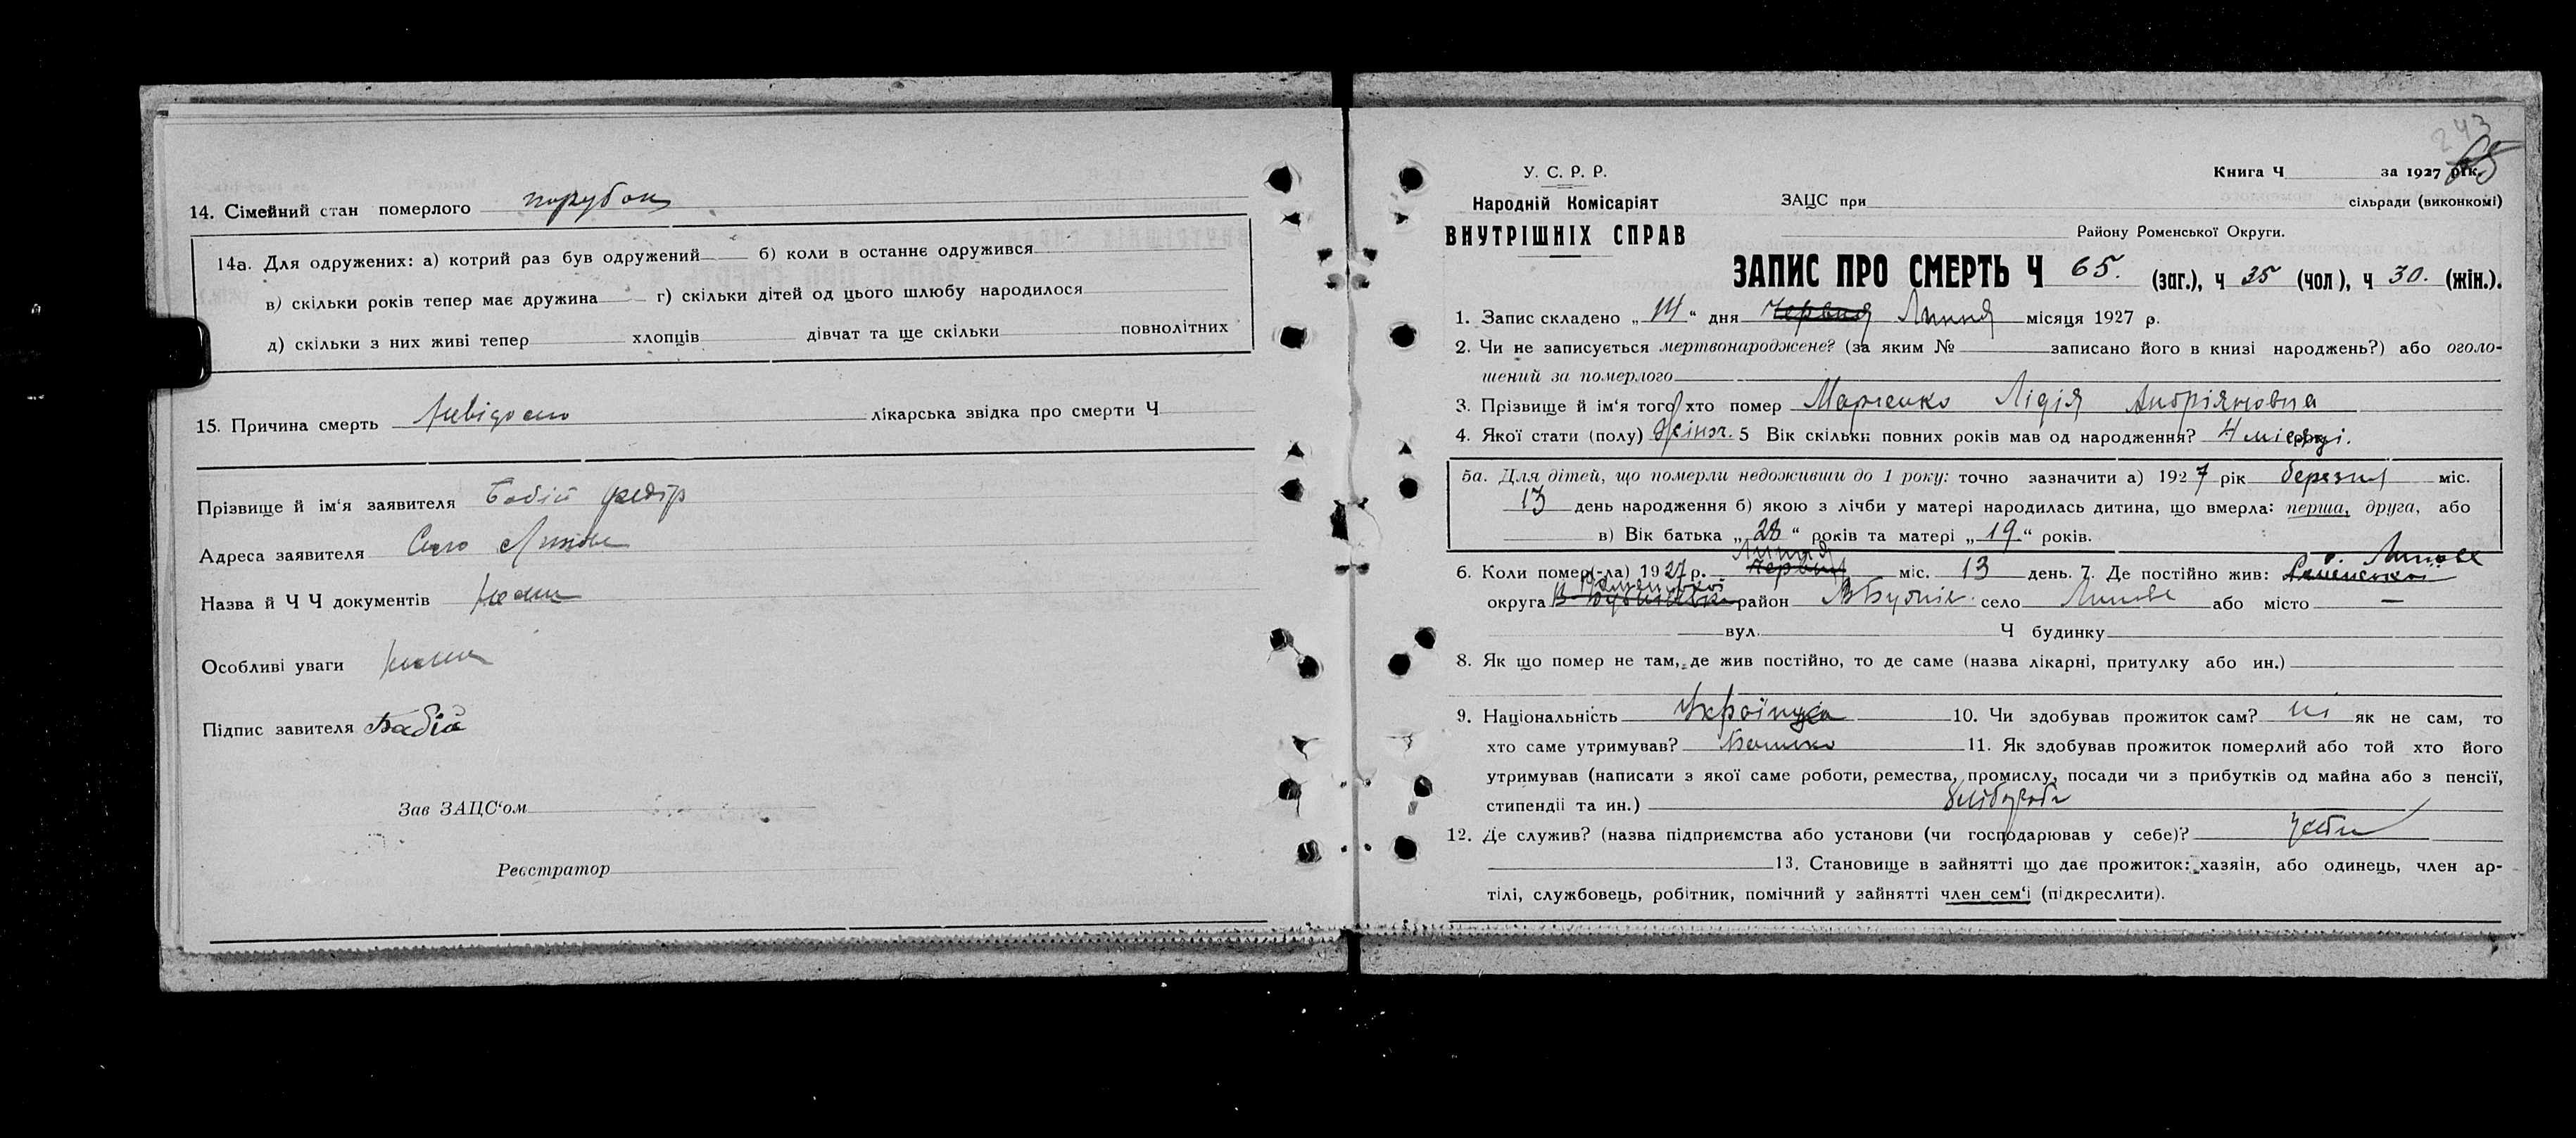 14. Сімейний стан померлого парубок
14а. Для одружених: а) котрий раз був одружений б) коли в останнє одружився
в) скільки років тепер має дружина г) скільки дітей од цього шлюбу народилося
д) скільки з них живі тепер хлопців дівчат та ще скільки повнолітних
15. Причина смерть невідомо лікарська звідка про смерти Ч
Прізвище й ім'я заявителя Бабій Федір
Адреса заявителя Село Липове
Назва й Ч Ч документів нема
Особливі уваги нема
Підпис завителя Бабій
Зав ЗАЦС'ом
Реєстратор
243
65
У. С. Р. Р.
Народній Комісаріят
ВНУТРІШНІХ СПРАВ
Книга Ч за 1927 рік.
ЗАЦС при сільради (виконкомі)
Району Роменської Округи.
ЗАПИС ПРО СМЕРТЬ Ч 65. (заг.), ч 35 (чол), ч 30. (жін.).
1. Запис складено „14“ дня Червня Липня місяця 1927 р.
2. Чи не записується мертвонароджене? (за яким № записано його в книзі народжень?) або оголо-
шений за померлого
3. Прізвище й ім'я того хто помер Марченко Лідія Андріяновна
4. Якої стати (полу) Жіноч. 5 Вік скільки повних років мав од народження? 4 місяці.
5а. Для дітей, що померли недоживши до 1 року: точно зазначити а) 1927 рік березня міс.
13 день народження б) якою з лічби у матері народилась дитина, що вмерла: перша, друга, або
в) Вік батька „28“ років та матері „19“ років.
Липня с. Липове
6. Коли помер(-ла) 1927 р. Червня міс. 13 день. 7. Де постійно жив: Роменської
Роменської
округа район В Бубнів. село Липове або місто —
вул. Ч будинку
8. Як що помер не там, де жив постійно, то де саме (назва лікарні, притулку або ин.)
9. Національність Українка 10. Чи здобував прожиток сам? ні як не сам, то
хто саме утримував? Батько 11. Як здобував прожиток померлий або той хто його
утримував (написати з якої саме роботи, ремества, промислу, посади чи з прибутків од майна або з пенсії,
стипендії та ин.) хлібороб
12. Де служив? (назва підприємства або установи (чи господарював у себе)? у себе
13. Становище в зайнятті що дає прожиток: хазяін, або одинець, член ар-
тілі, службовець, робітник, помічний у зайнятті член сем'ї (підкреслити).